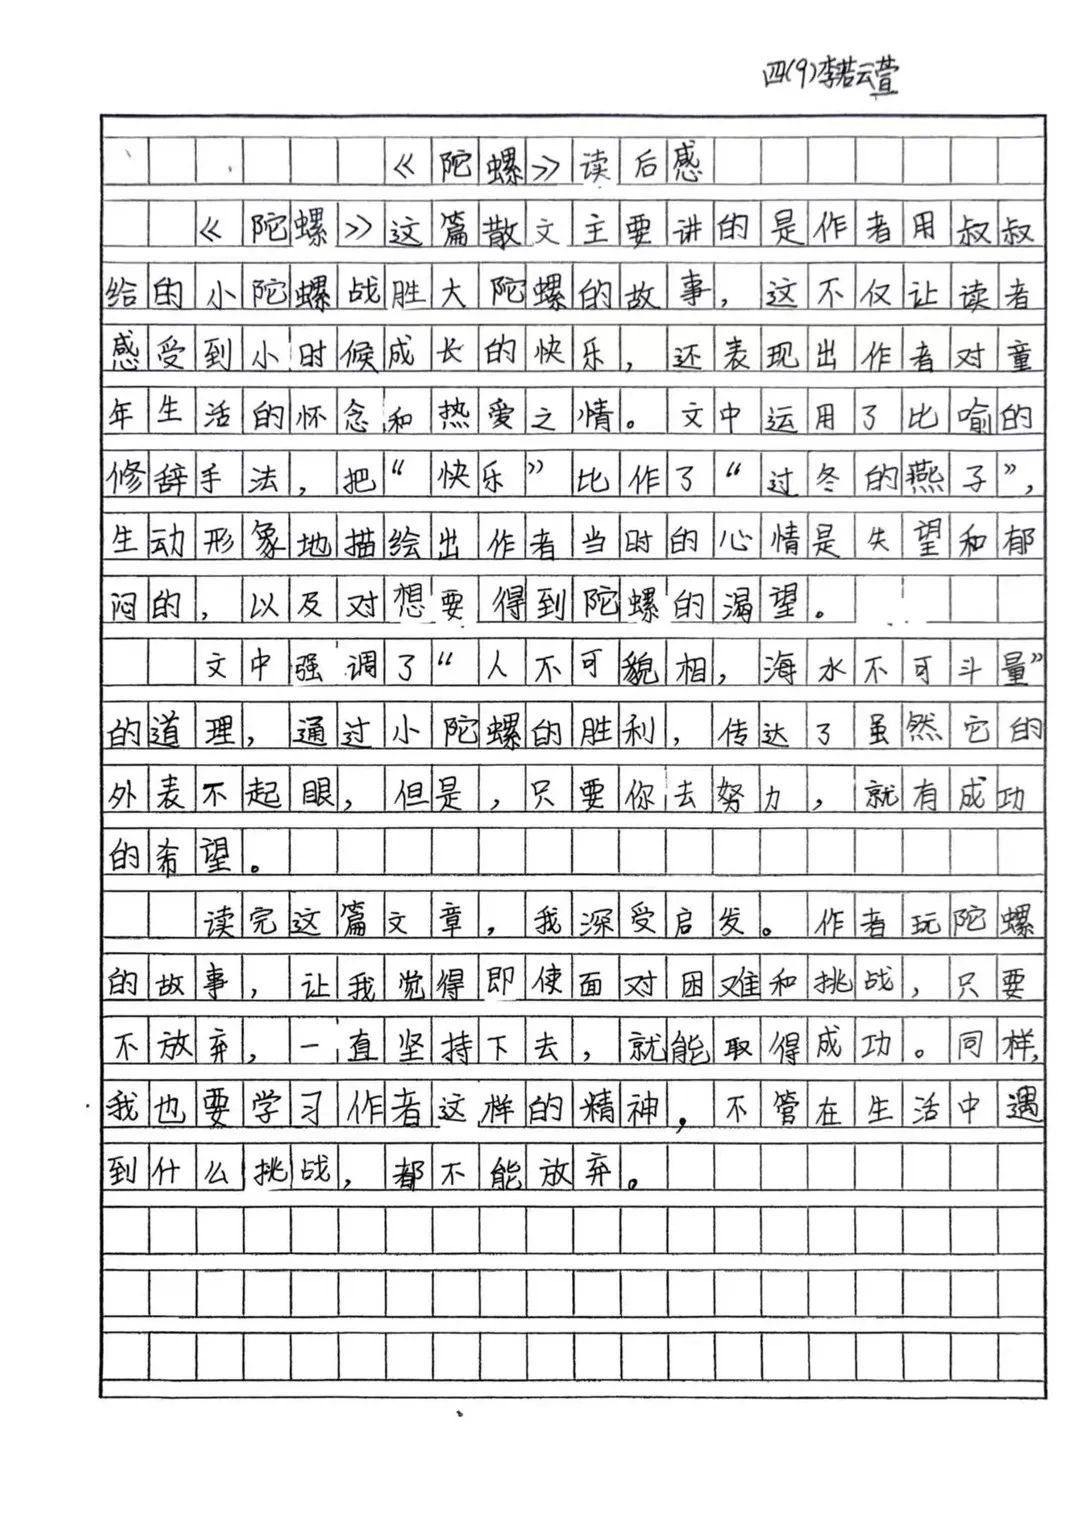 四(9)李若云萱
《陀螺》读后感
《陀螺》这篇散文主要讲的是作者用叔叔
给的小陀螺战胜大陀螺的故事，这不仅让读者
感受到小时候成长的快乐，还表现出作者对童
年生活的怀念和热爱之情。文中运用了比喻的
修辞手法，把“快乐”比作了“过冬的燕子”，
生动形象地描绘出作者当时的心情是失望和郁
闷的，以及对想要得到陀螺的渴望。
文中强调了“人不可貌相，海水不可斗量”
的道理，通过小陀螺的胜利，传达了虽然它的
外表不起眼，但是，只要你去努力，就有成功
的希望。
读完这篇文章，我深受启发。作者玩陀螺
的故事，让我觉得即使面对困难和挑战，只要
不放弃，一直坚持下去，就能取得成功。同样，
我也要学习作者这样的精神，不管在生活中遇
到什么挑战，都不能放弃。